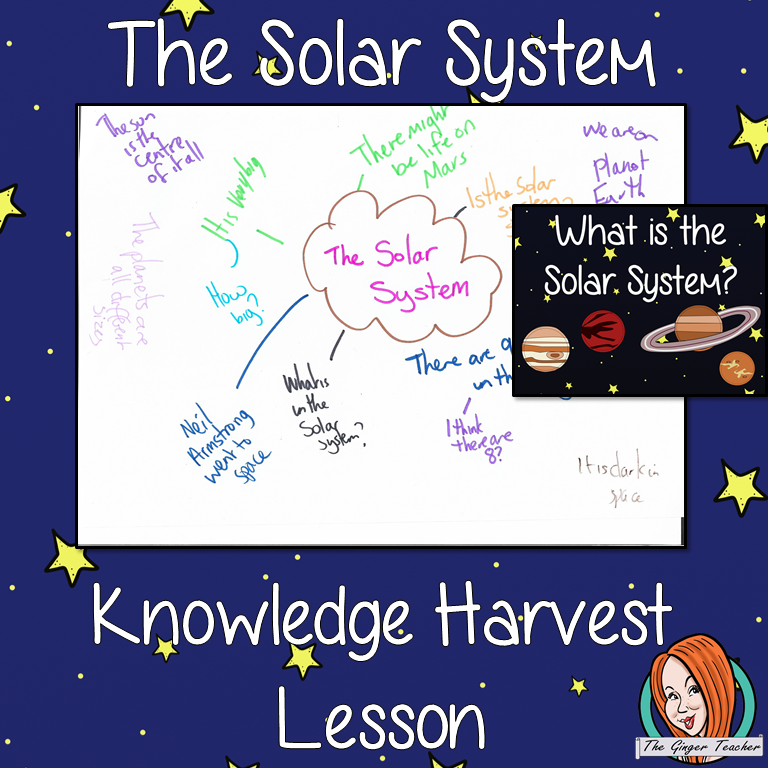 The Solar System
The sun
is the
centre
of it all
It is very big
There might
be life on
Mars
Is the Solar
system
we are on
Planet
Earth
The planets are
all different
sizes
How
big?
The Solar
System
What is the
Solar System?
Neil
Armstrong
went to
space
What is
in the
Solar
system?
There are
in th
I think
there are
8?
It is dark in
space
Knowledge Harvest
Lesson
The Ginger Teacher